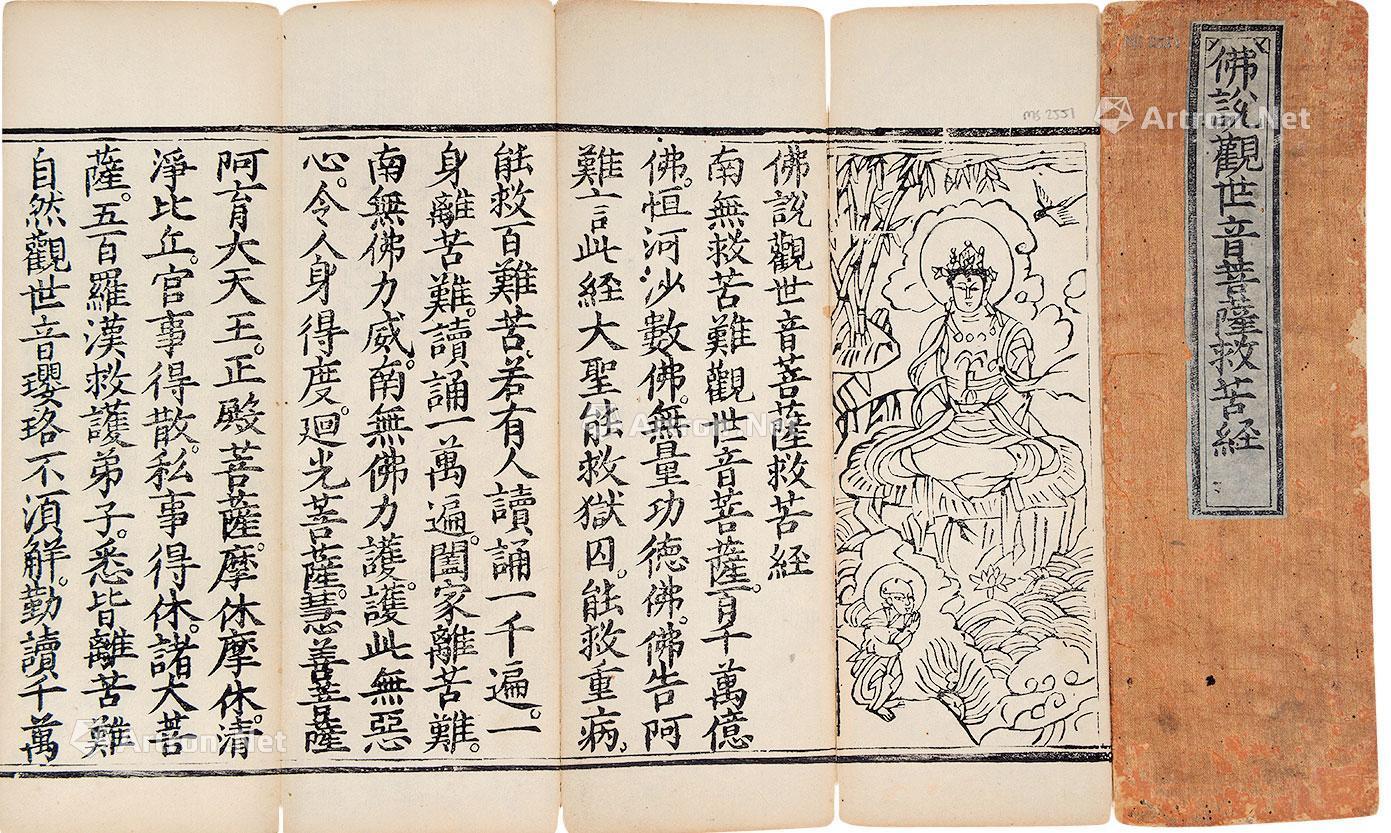 佛說觀世音菩薩救苦経
佛說觀世音菩薩救苦経
南無救苦難觀世音菩薩。百千萬億
佛。恒河沙數佛。無量功德佛。佛告阿
難言此経大聖能救獄囚。能救重病。
能救百難苦。若有人讀誦一千遍。一
身離苦難。讀誦一萬遍。闔家離苦難。
南無佛力威。南無佛力護。護此無惡
心。令人身得度。廻光菩薩。慧善菩薩
阿育大天王。正殿菩薩。摩休摩休。清
淨比丘。官事得散。私事得休。諸大菩
薩。五百羅漢救護弟子。悉皆離苦難
自然觀世音瓔珞不湏解。勤讀千萬
MS 2551
Artron.Net
Artron.Net
Artron.Net